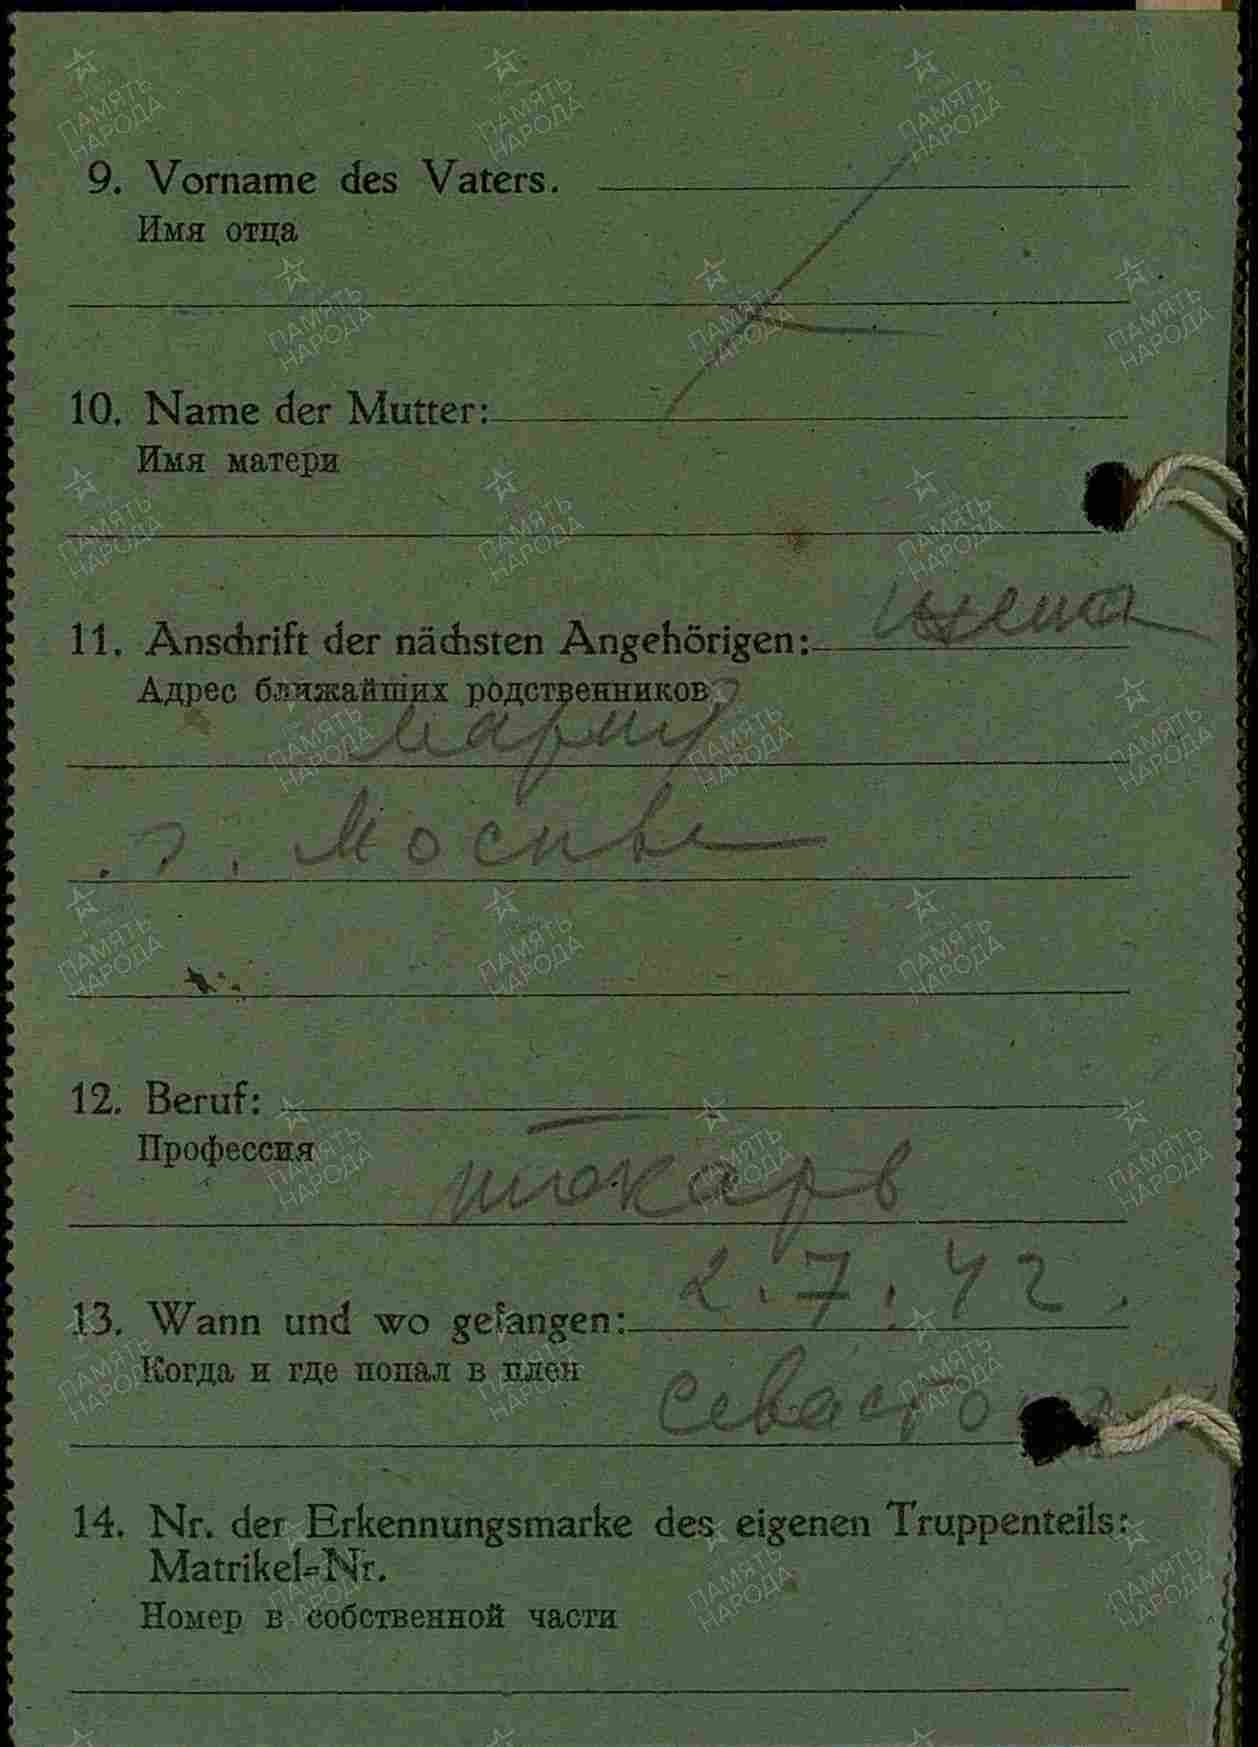 9. Vorname des Vaters.
Имя отца
10. Name der Mutter:
Имя матери
11. Anschrift der nächsten Angehörigen: жена
Адрес ближайших родственников
Мария
г. Москва
12. Beruf:
Профессия
токарь
13. Wann und wo gefangen: 2.7.42.
Когда и где попал в плен
Севасто
14. Nr. der Erkennungsmarke des eigenen Truppenteils:
Matrikel=Nr.
Номер в собственной части
ПАМЯТЬ НАРОДА